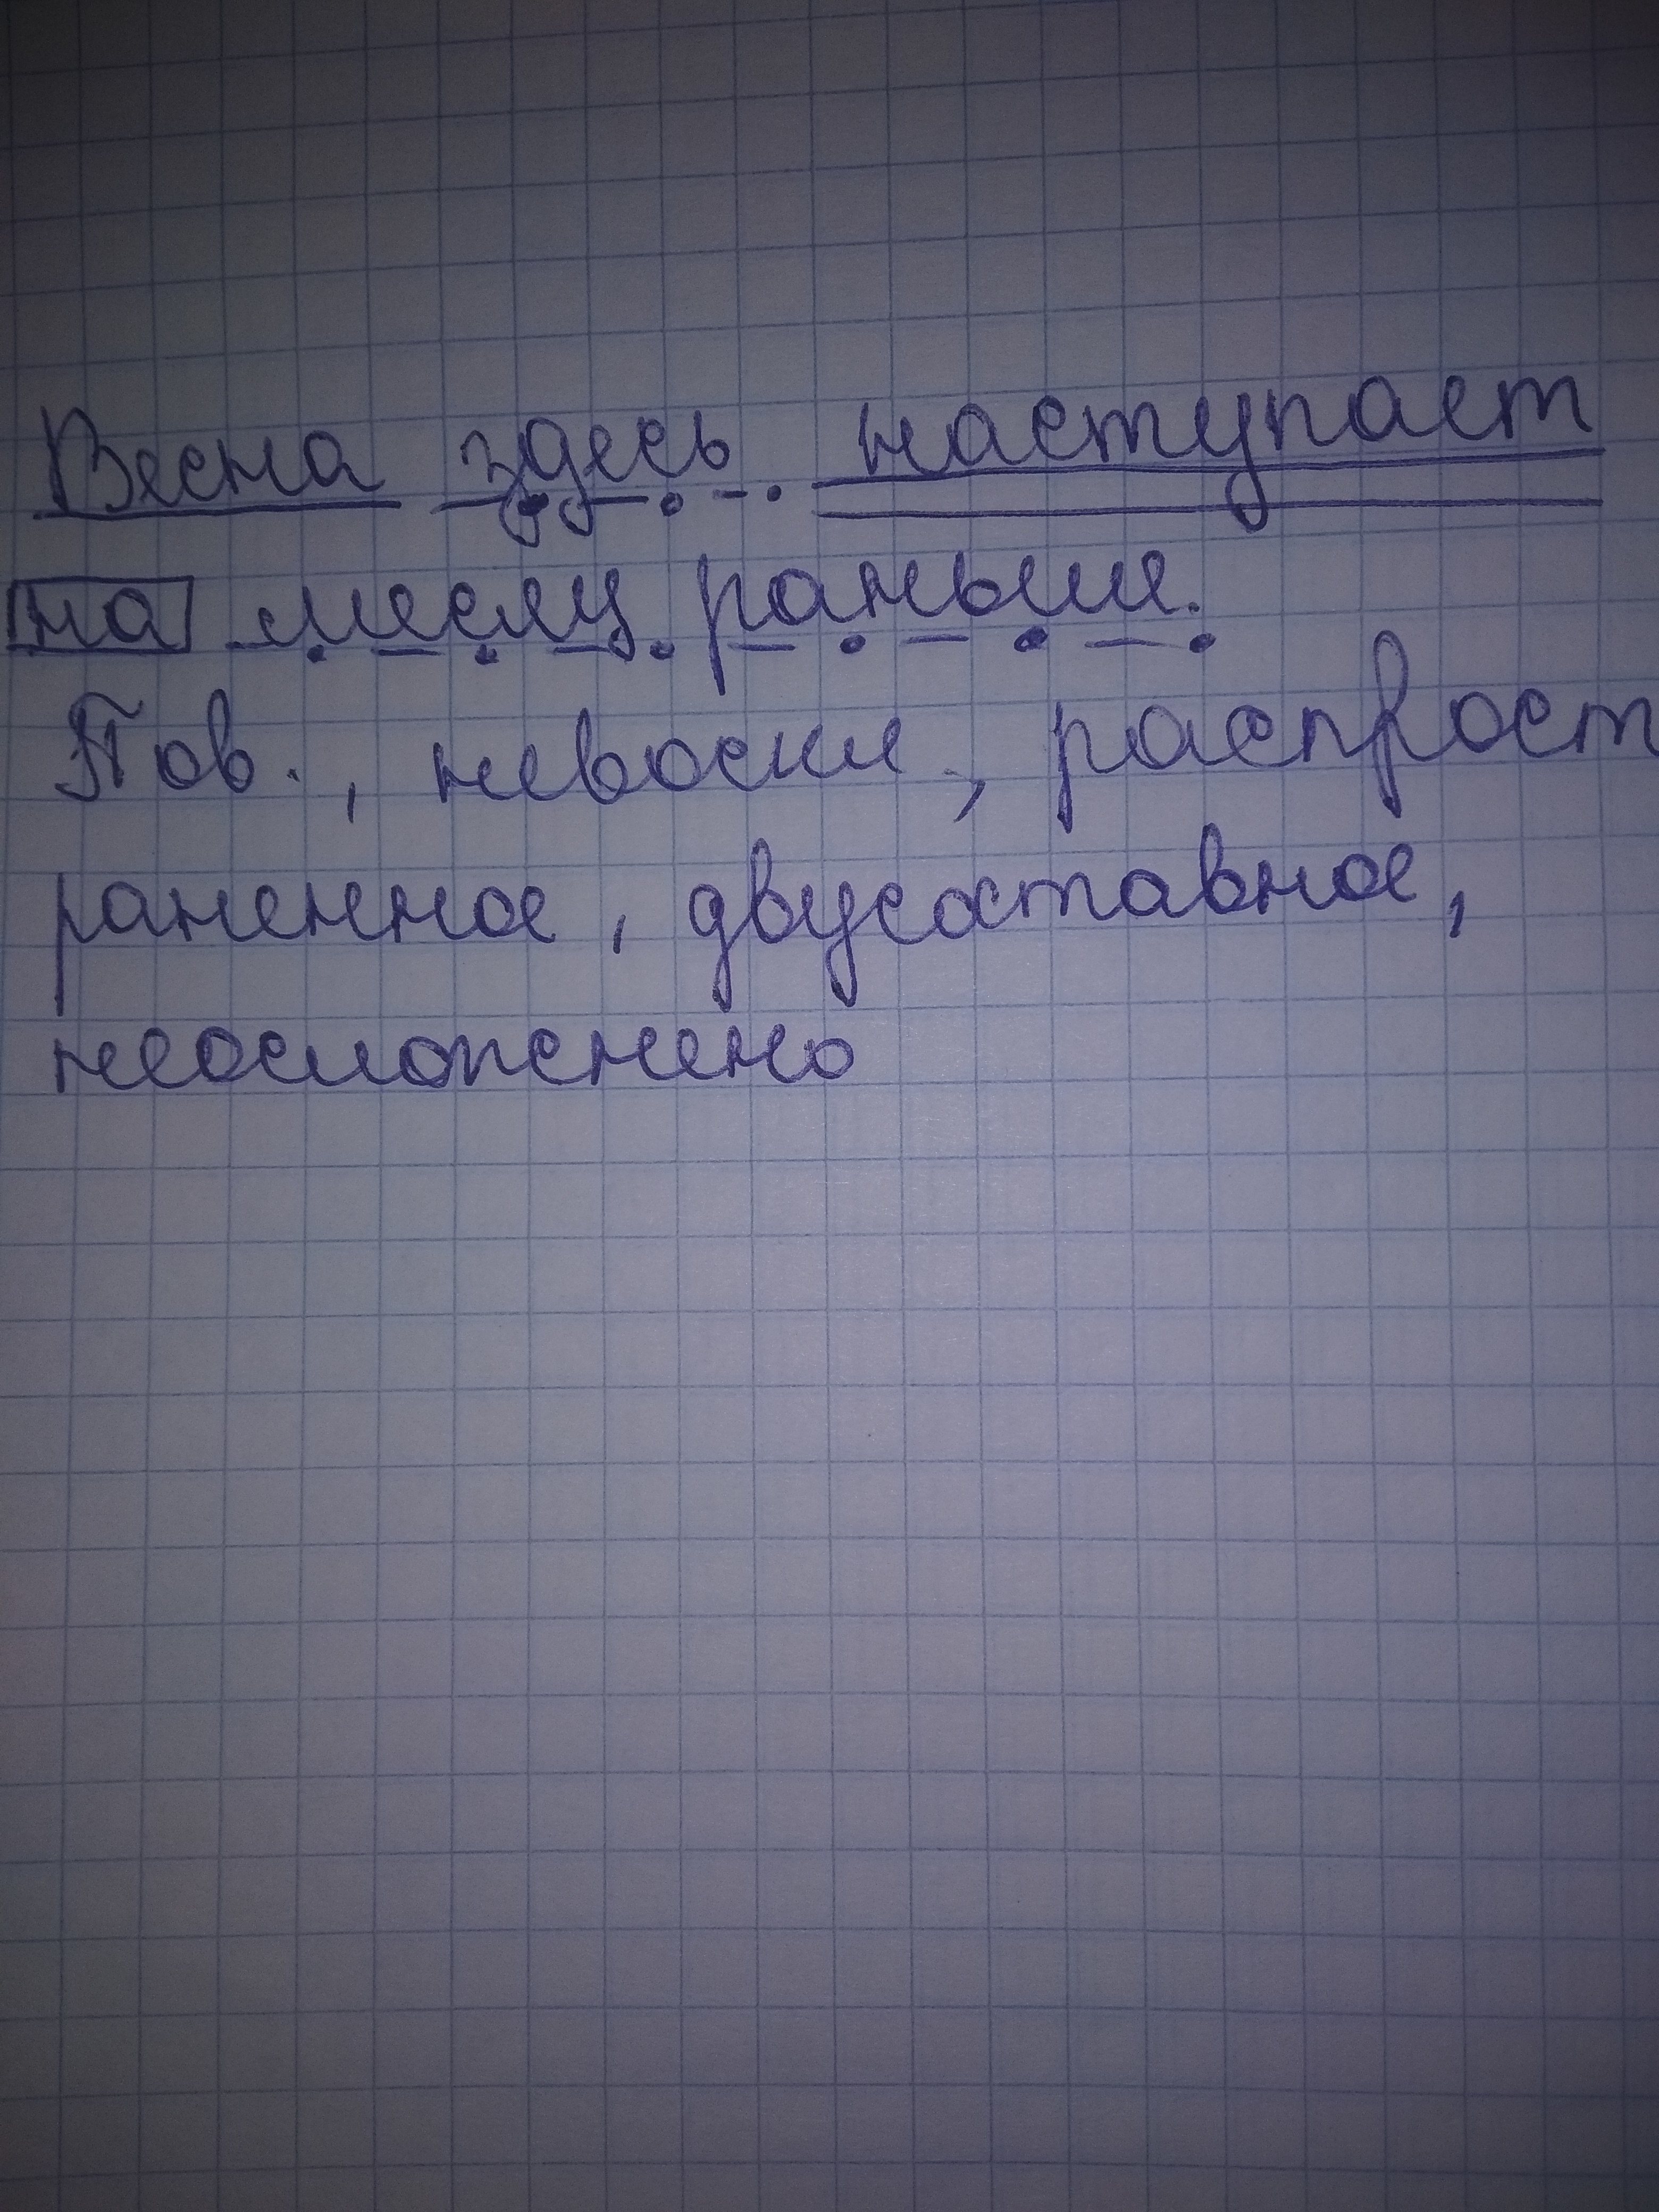 Весна здесь наступает
на месяц раньше.
Пов., невоскл., распрост
раненное, двусоставное,
неосложнено